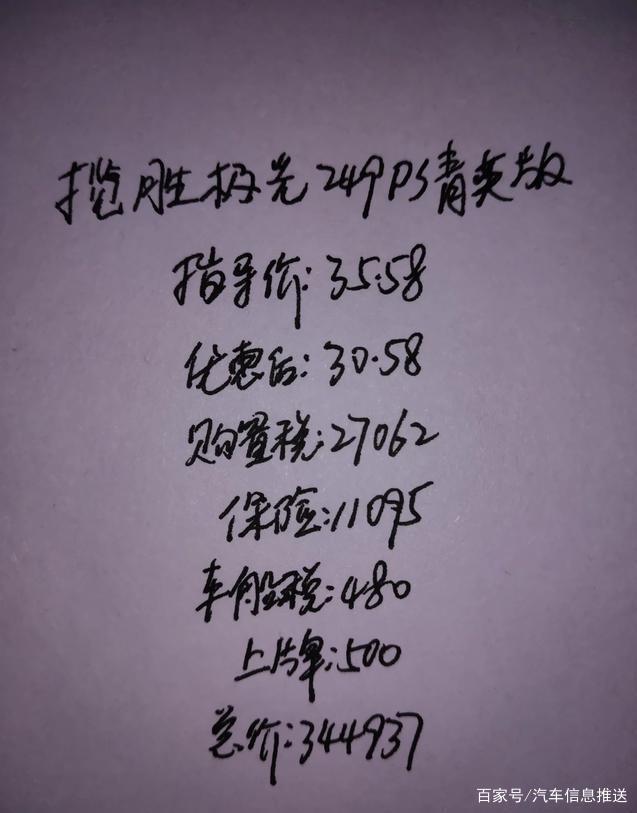 揽胜极光249PS青英版
指导价:35.58
优惠后:30.58
购置税:27062
保险:11095
车船税:480
上牌:500
总价:344937
百家号/汽车信息推送